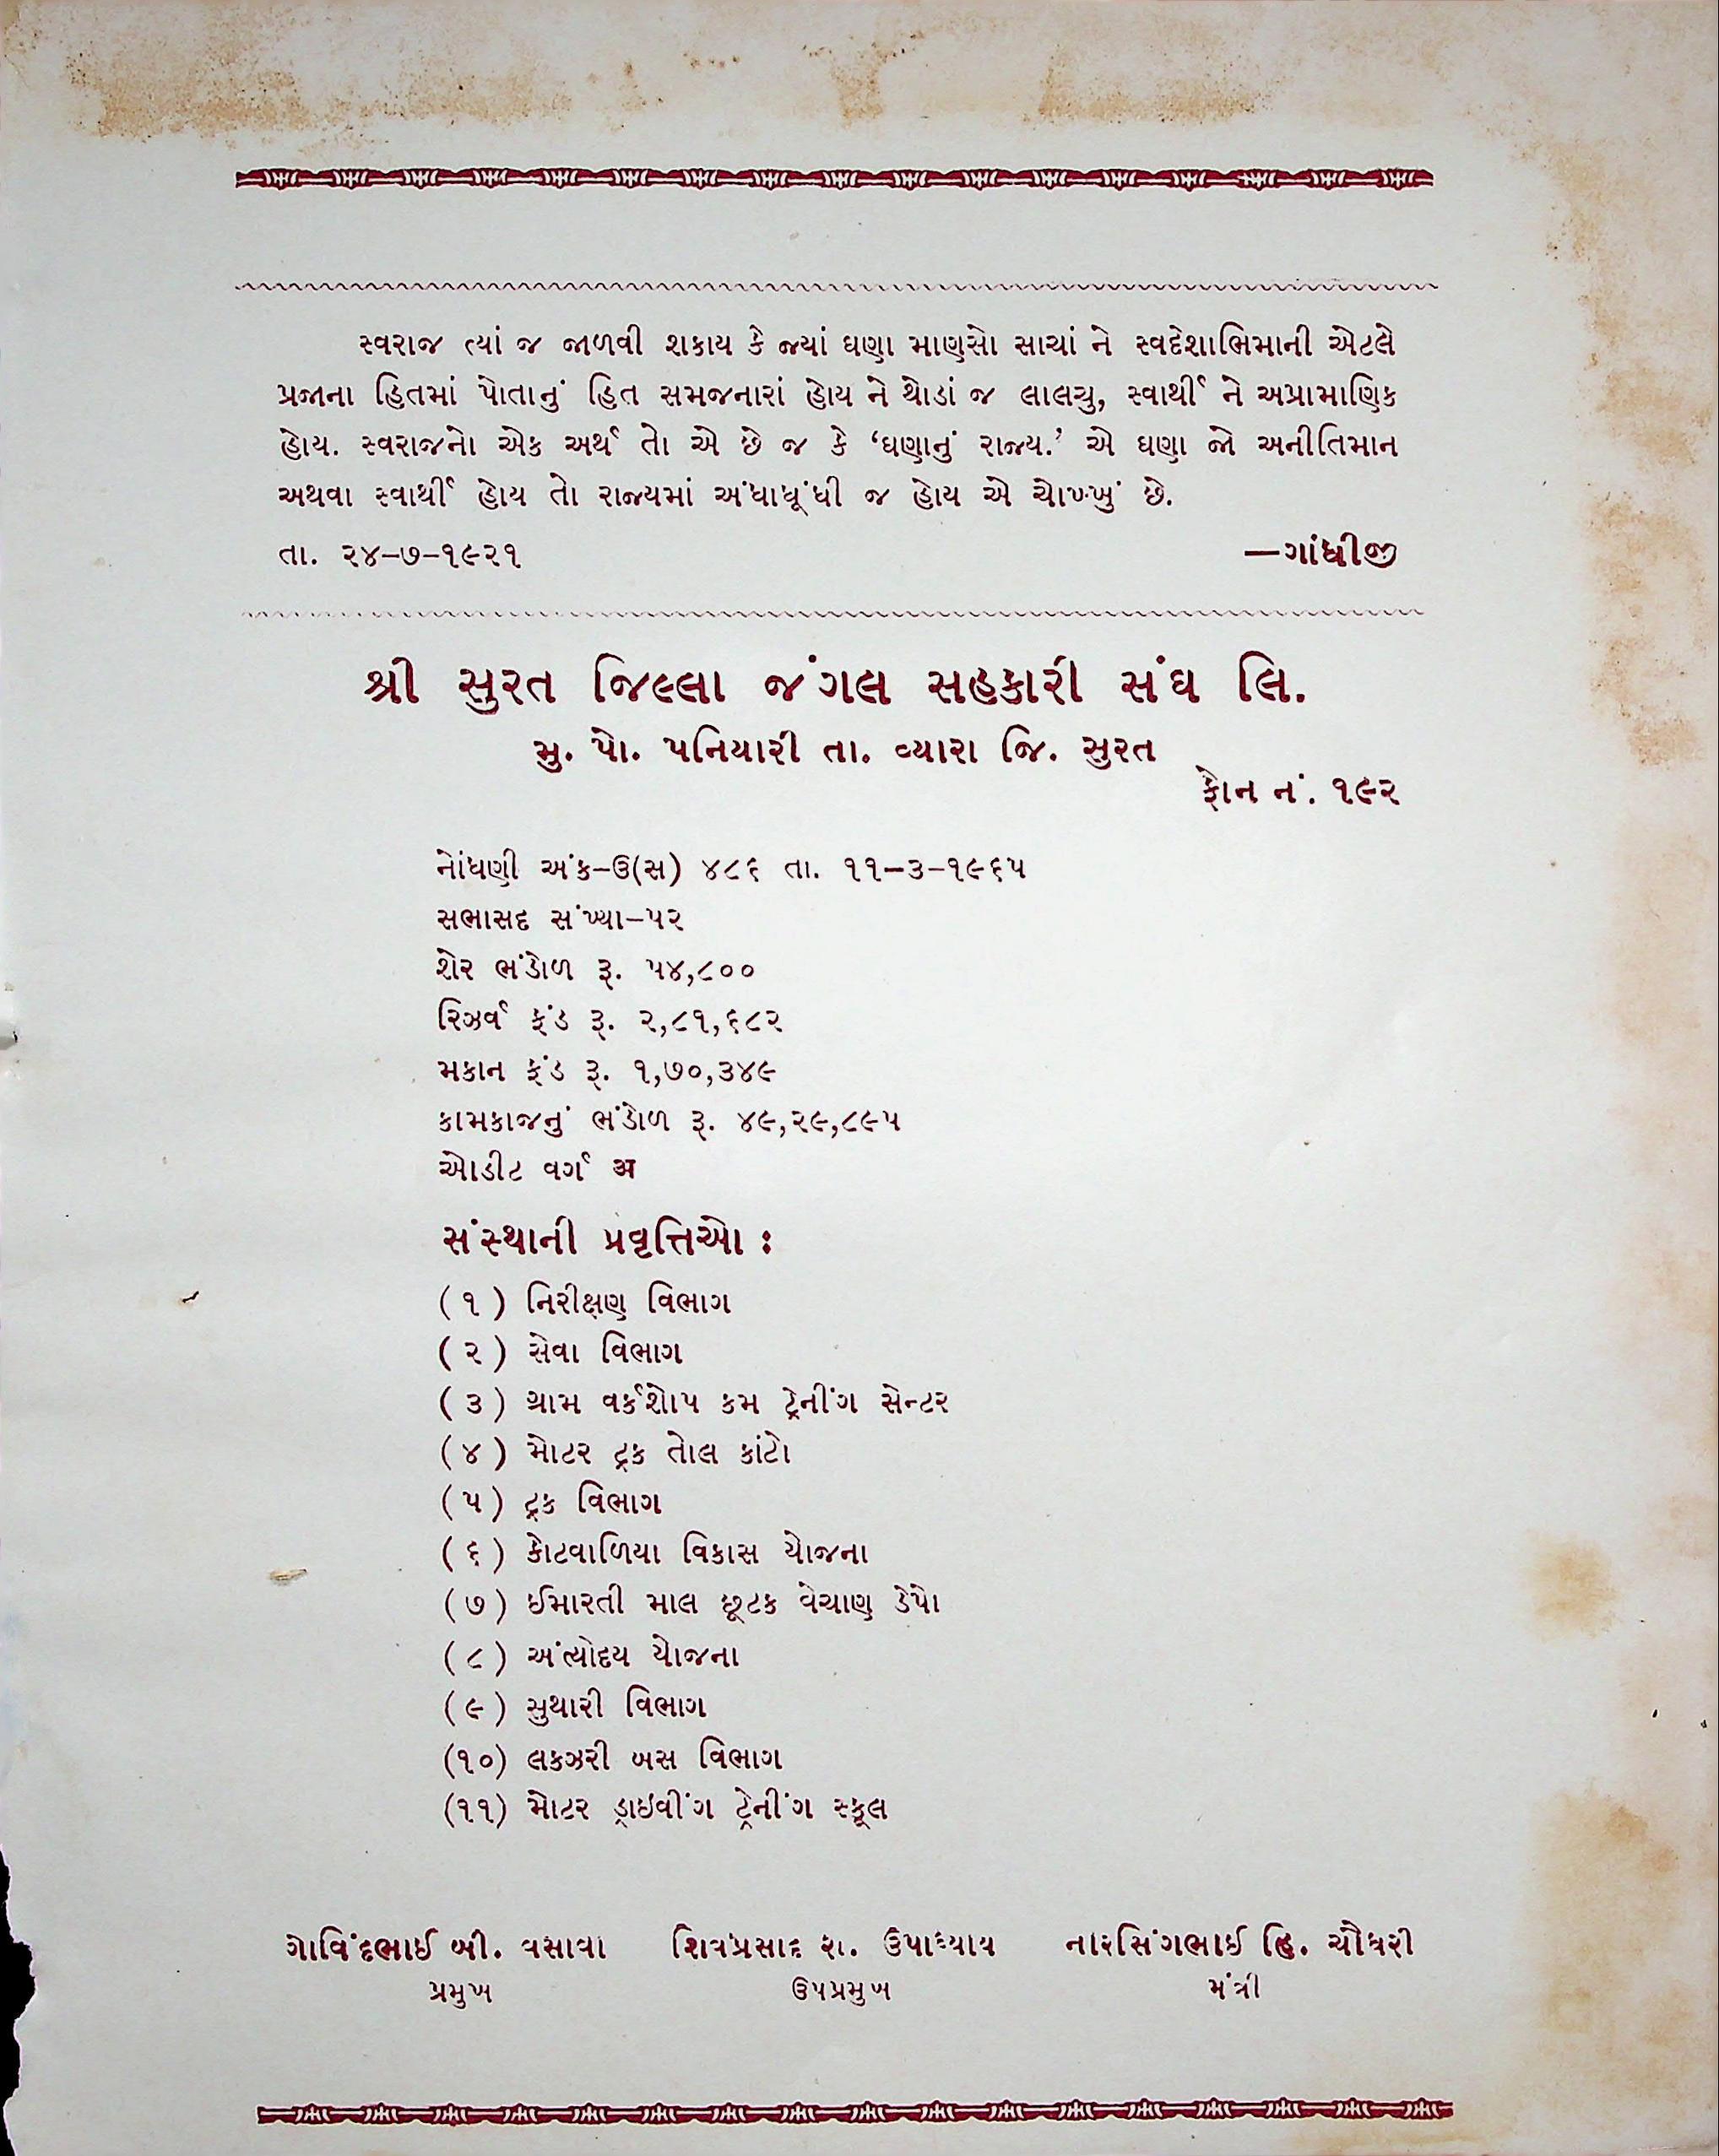 સ્વરાજ ત્યાં જ જાળવી શકાય કે જ્યાં ઘણા માણસો સાચાં ને સ્વદેશાભિમાની એટલે
પ્રજાના હિતમાં પોતાનું હિત સમજનારાં હોય ને થોડાં જ લાલચુ, સ્વાર્થી ને અપ્રામાણિક
હોય. સ્વરાજનો એક અર્થ તો એ છે જ કે ‘ઘણાનું રાજ્ય.’ એ ઘણા જો અનીતિમાન
અથવા સ્વાર્થી હોય તો રાજ્યમાં અંધાધૂંધી જ હોય એ ચોખ્ખું છે.
તા. ૨૪–૭–૧૯૨૧ —ગાંધીજી
શ્રી સુરત જિલ્લા જંગલ સહકારી સંઘ લિ.
મુ. પો. પનિયારી તા. વ્યારા જિ. સુરત
ફોન નં. ૧૯૨
નોંધણી અંક–ઉ(સ) ૪૮૬ તા. ૧૧–૩–૧૯૬૫
સભાસદ સંખ્યા–૫૨
શેર ભંડોળ રૂ. ૫૪,૮૦૦
રિઝર્વ ફંડ રૂ. ૨,૮૧,૬૮૨
મકાન ફંડ રૂ. ૧,૭૦,૩૪૯
કામકાજનું ભંડોળ રૂ. ૪૯,૨૯,૮૯૫
ઓડીટ વર્ગ अ
સંસ્થાની પ્રવૃત્તિઓ :
(૧) નિરીક્ષણ વિભાગ
(૨) સેવા વિભાગ
(૩) ગ્રામ વર્કશોપ કમ ટ્રેનીંગ સેન્ટર
(૪) મોટર ટ્રક તોલ કાંટો
(૫) ટ્રક વિભાગ
(૬) કોટવાળિયા વિકાસ યોજના
(૭) ઈમારતી માલ છૂટક વેચાણ ડેપો
(૮) અંત્યોદય યોજના
(૯) સુથારી વિભાગ
(૧૦) લકઝરી બસ વિભાગ
(૧૧) મોટર ડ્રાઇવીંગ ટ્રેનીંગ સ્કૂલ
ગોવિંદભાઈ બી. વસાવા શિવપ્રસાદ રા. ઉપાધ્યાય નારસિંગભાઈ હિ. ચૌધરી
પ્રમુખ ઉપપ્રમુખ મંત્રી